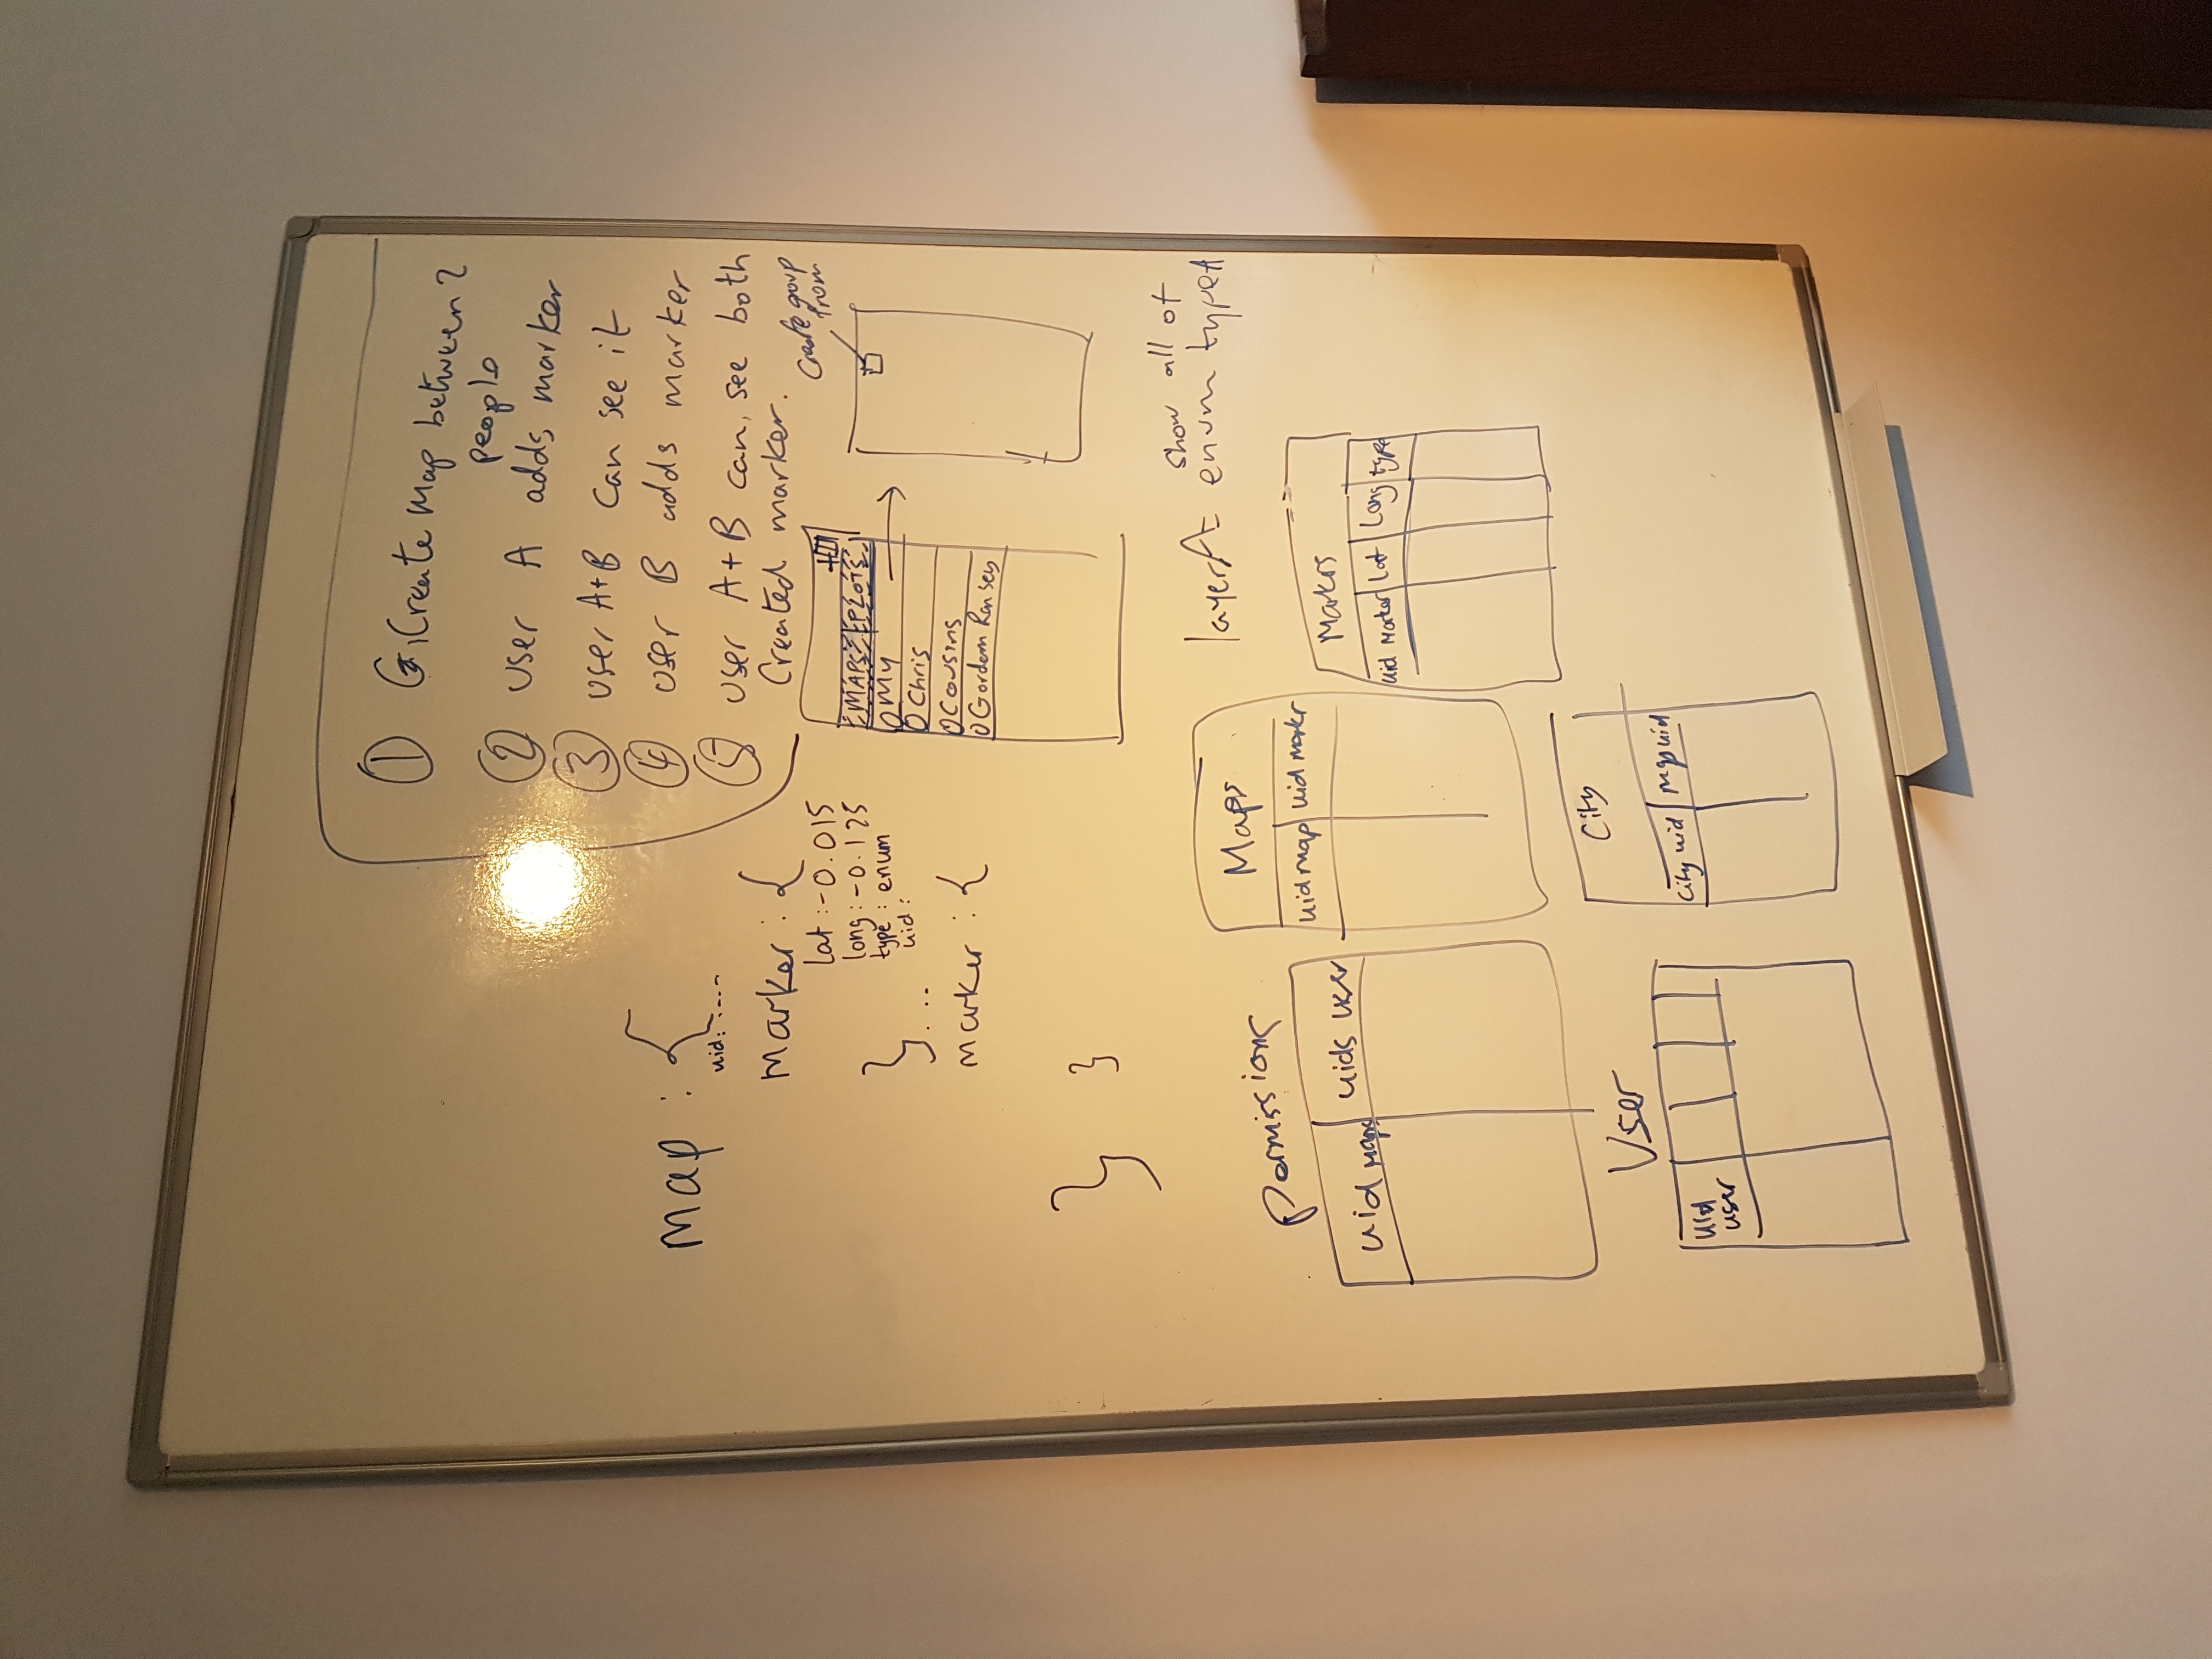 ① G, Create Map between 2
people
② user A adds marker
③ user A+B can see it
④ user B adds marker
⑤ user A+B can see both
Created marker.
map : {
uid: ....
marker : {
lat : -0.015
long : -0.125
type : enum
uid :
} ...
marker : {
}
}
MAPS PLOTS
My
Chris
Cousins
Gordom Ransey
Create group
from
show all of
layer A = enum type A
Permissions
uid Maps uids user
Maps
uid map uid markr
Markrs
uid Marker lat Long type
User
uid
user
City
City uid Map uid